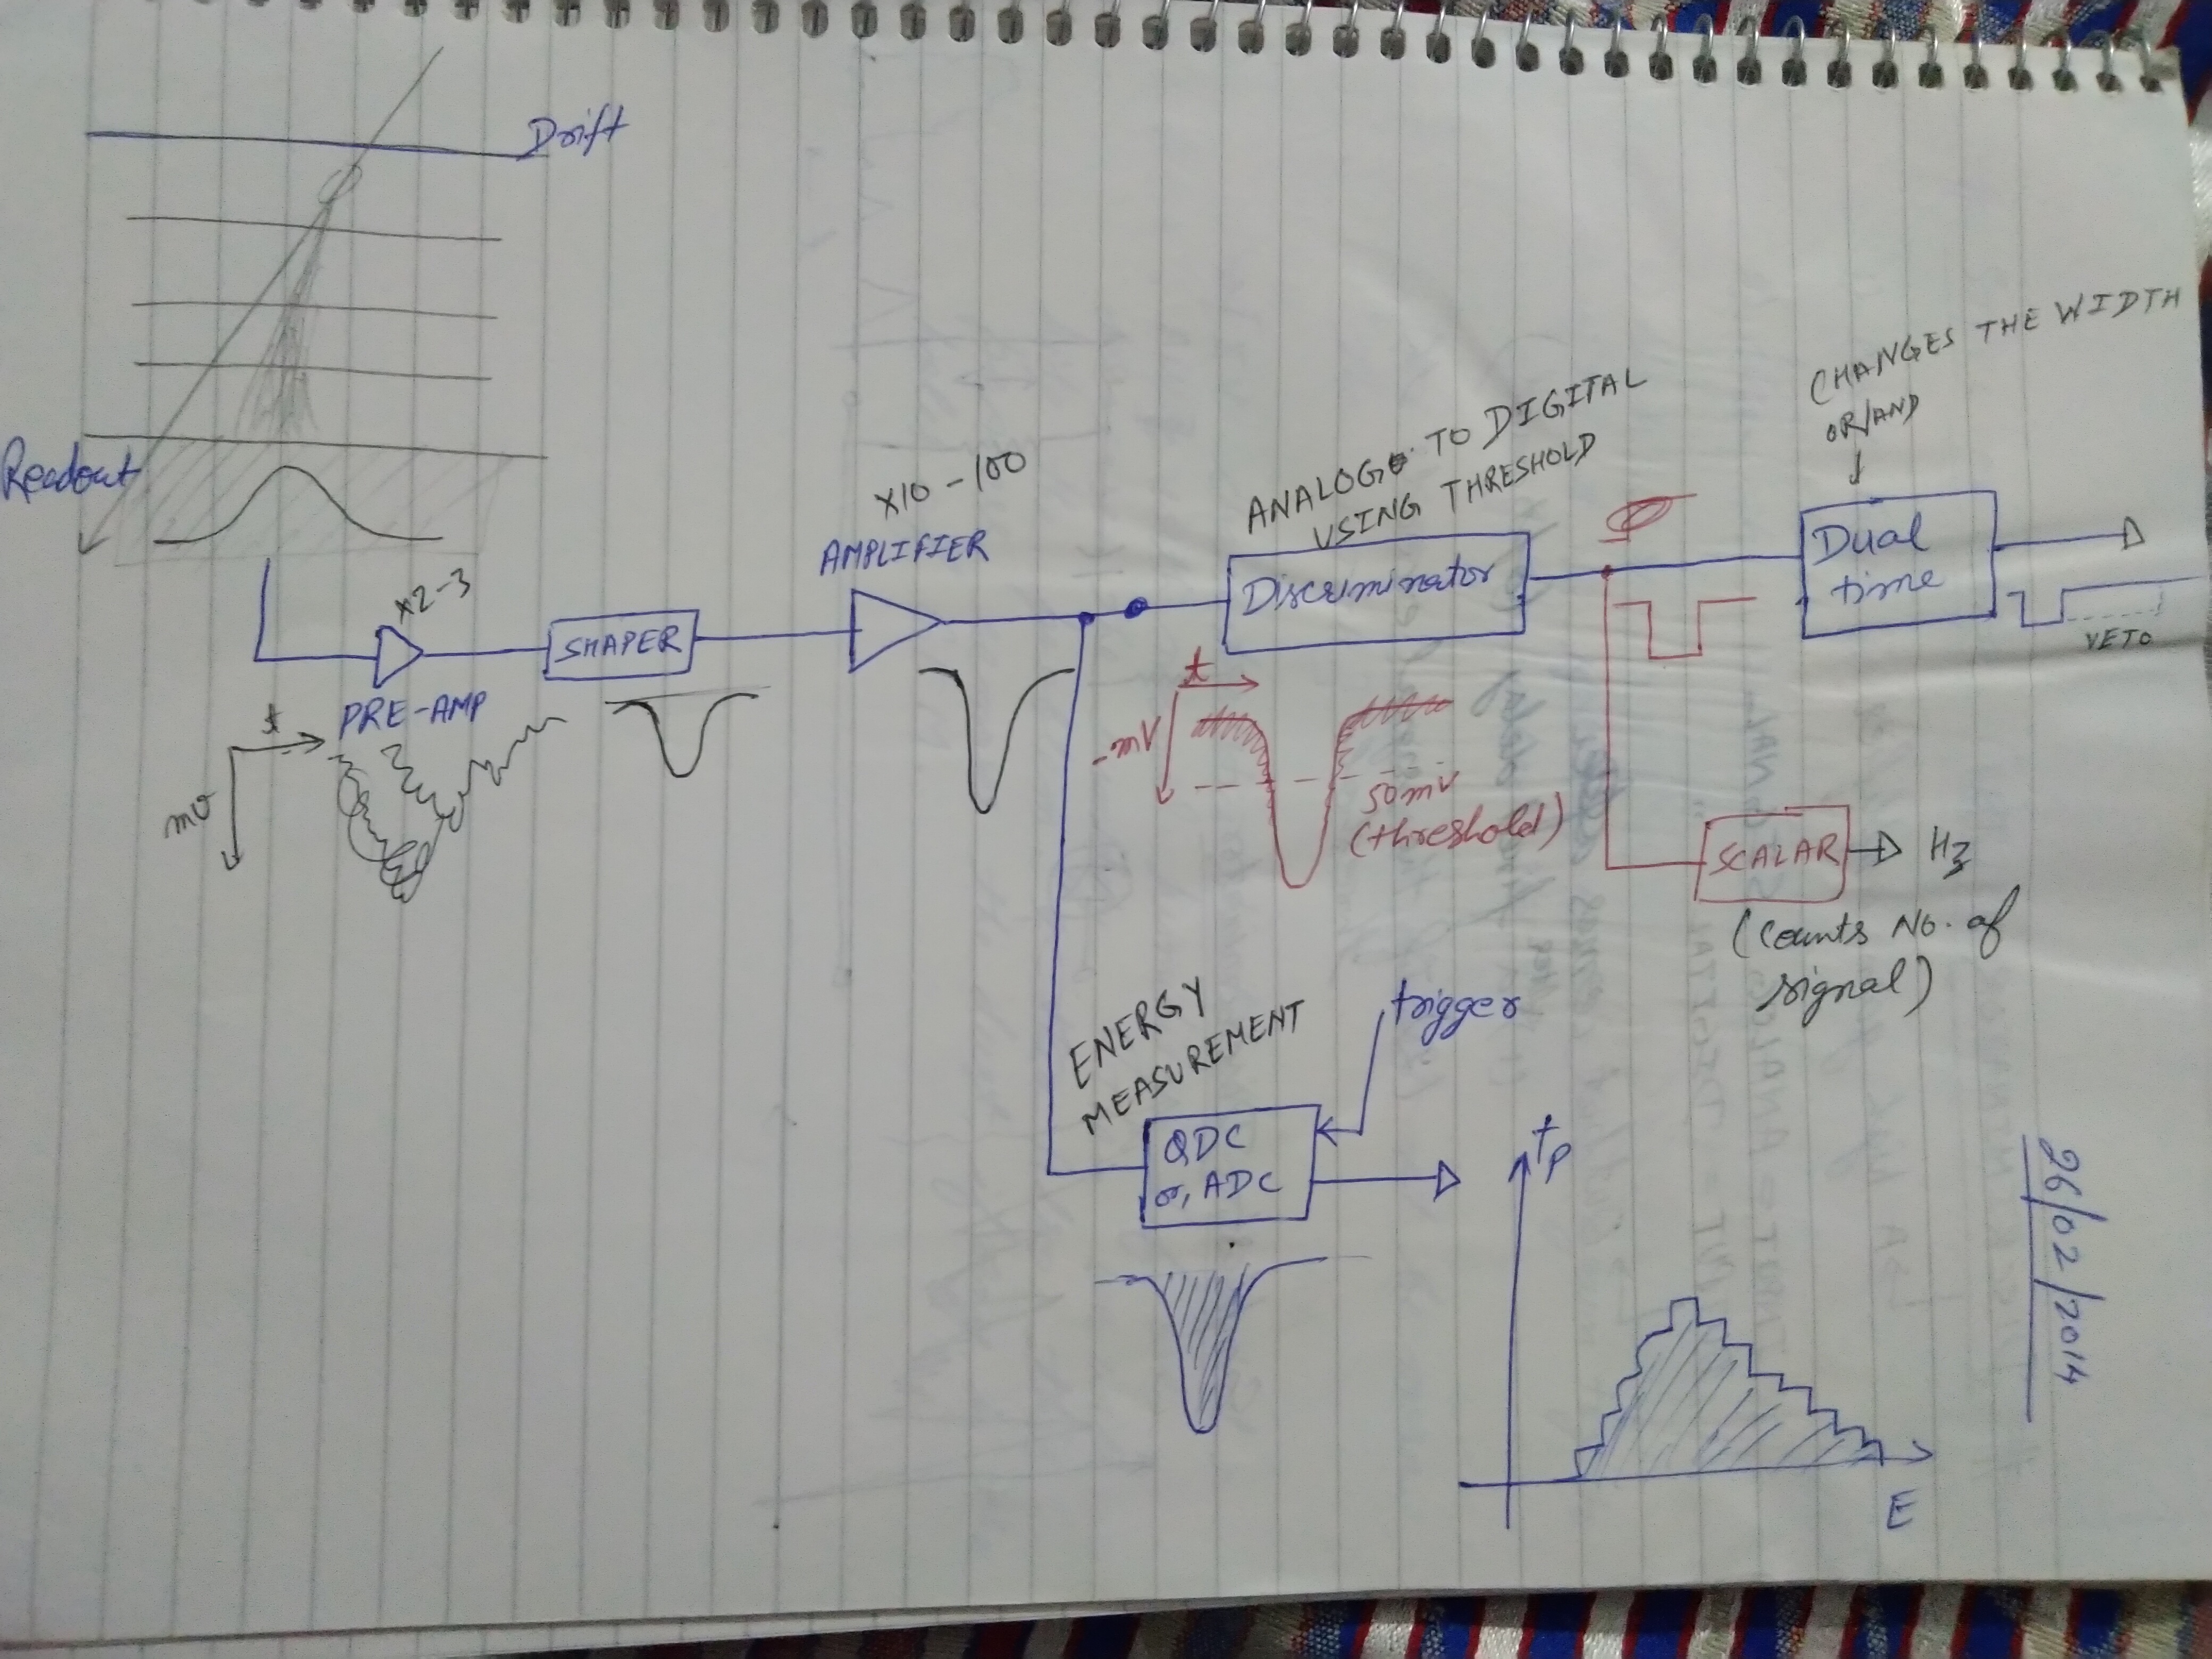 Drift
Readout
X2-3
PRE-AMP
t
mv
SHAPER
X10-100
AMPLIFIER
ANALOG TO DIGITAL
USING THRESHOLD
Discriminator
t
-mV
50mV
(threshold)
CHANGES THE WIDTH
OR/AND
Dual
time
VETO
SCALAR
Hz
(Counts No. of
signal)
ENERGY
MEASUREMENT
trigger
QDC
or, ADC
tp
E
26/02/2014